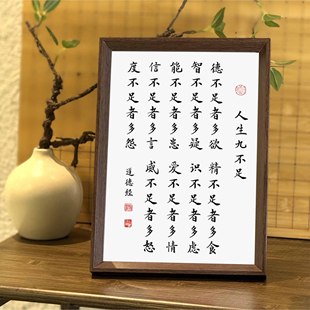 人生九不足
德不足者多欲 精不足者多食
智不足者多疑 识不足者多虑
能不足者多患 爱不足者多情
信不足者多言 威不足者多怒
度不足者多怨
道德经